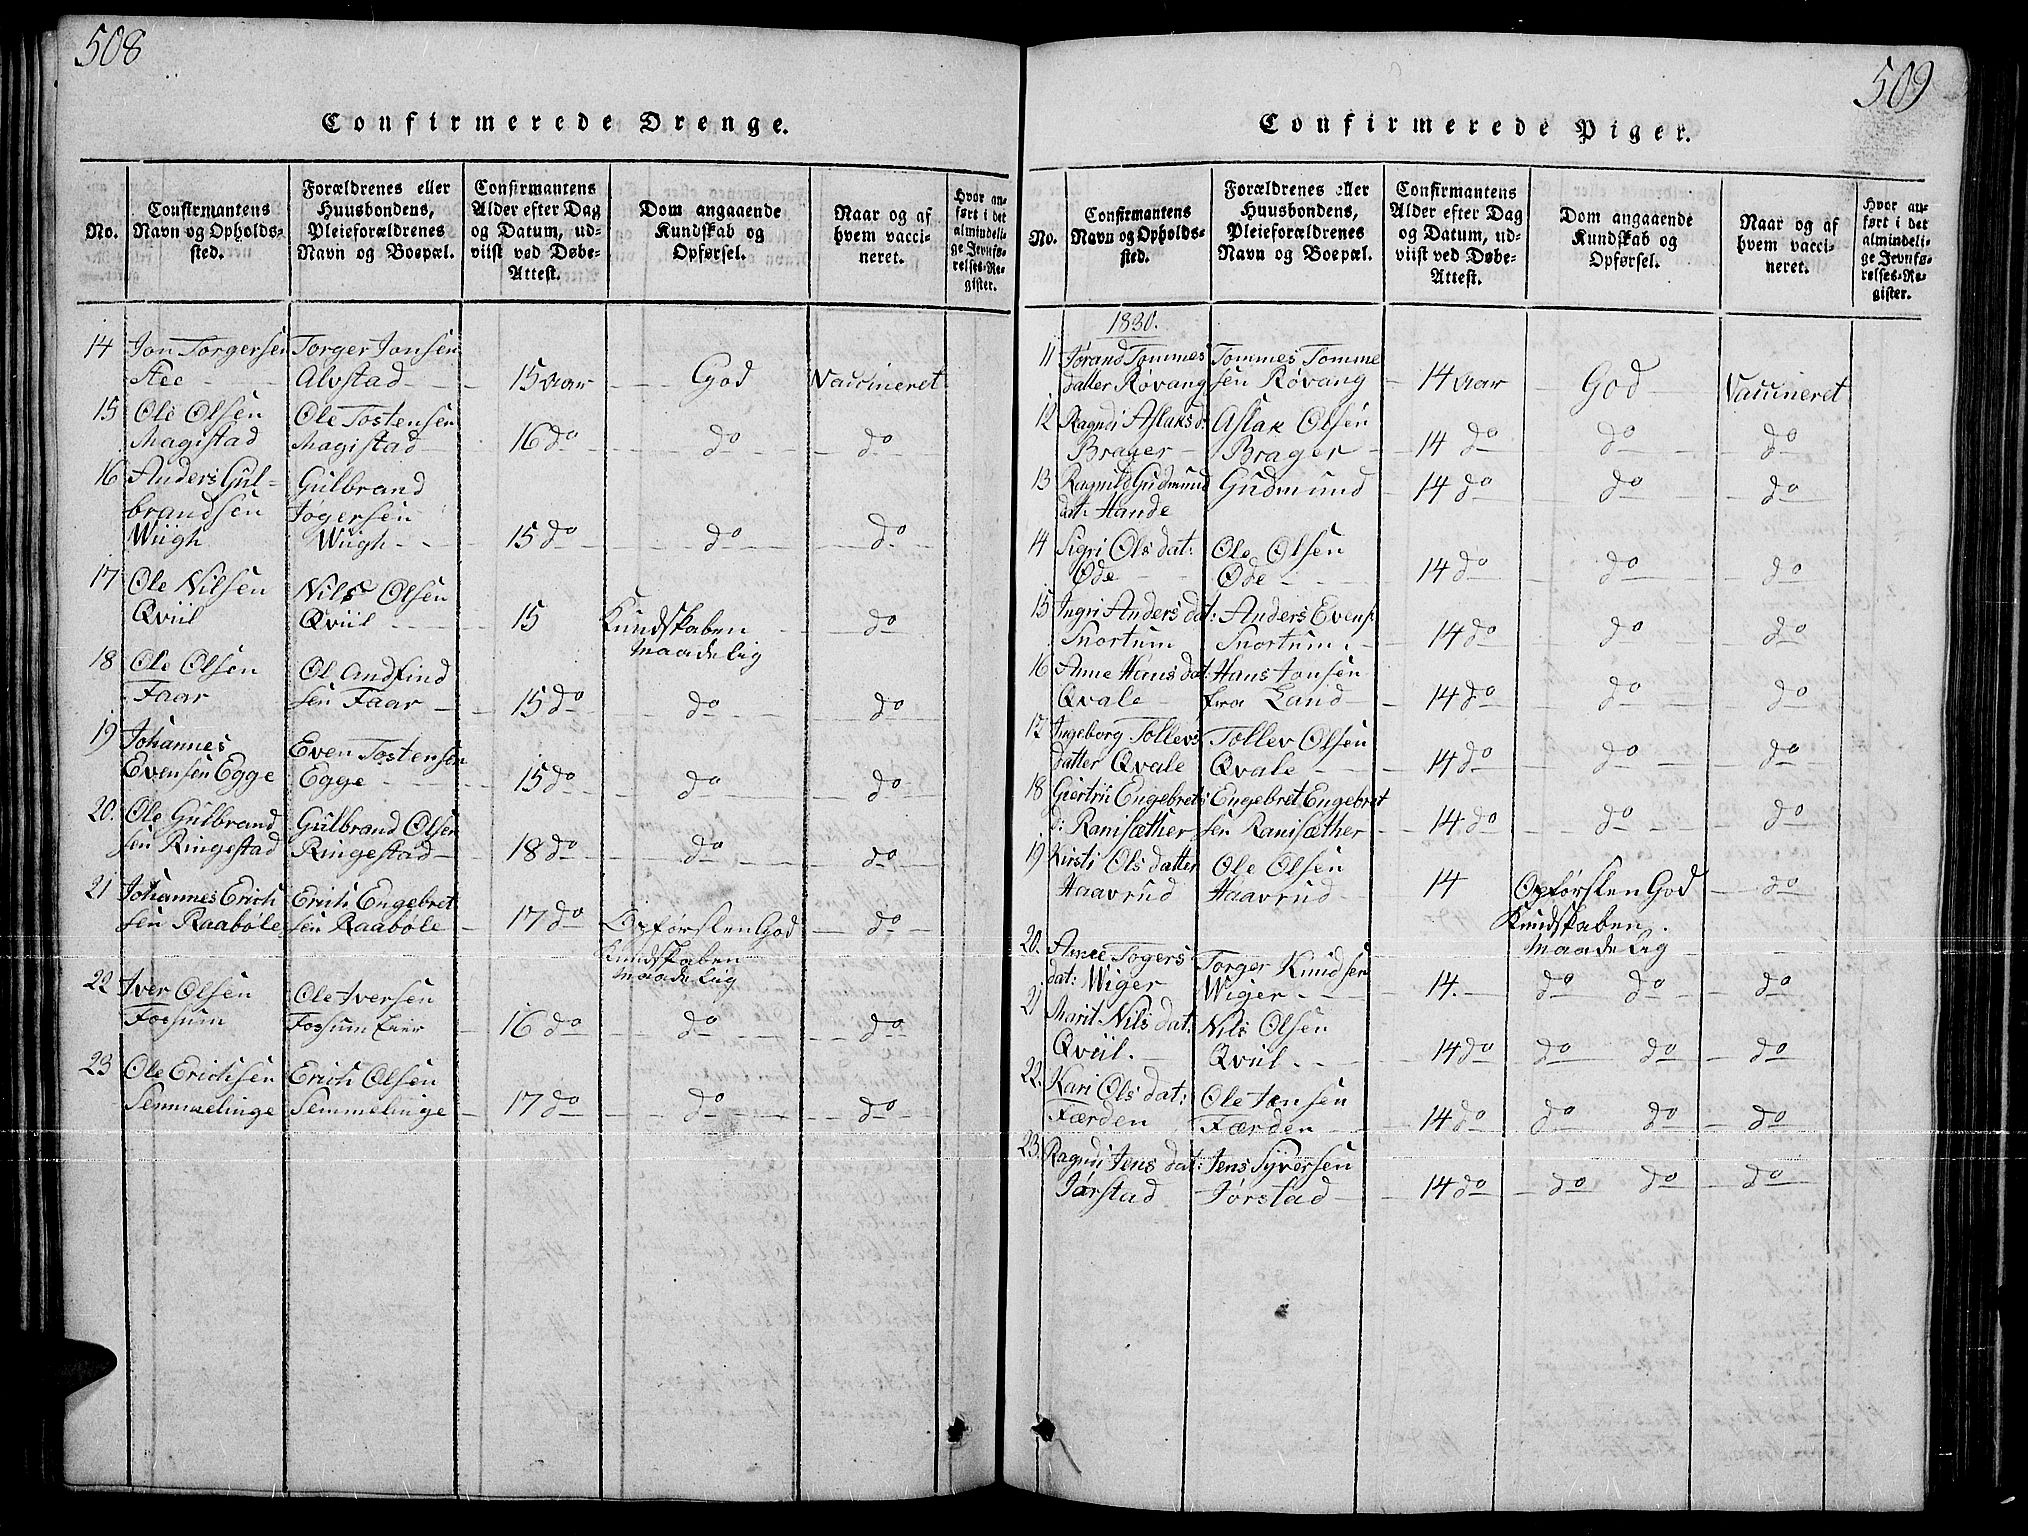 508
Confirmerede Drenge.
No.
Confirmantens Navn og Opholdssted.
Forældrenes eller Huusbondens, Pleieforældrenes Navn og Boepæl.
Confirmantens Alder efter Dag og Datum, udviist ved Døbe-Attest.
Dom angaaende Kundskab og Opførsel.
Naar og af hvem vaccineret.
Hvor anført i det almindelige Jevnførelses-Register.
14 Jon Torgersen Torger Jonsen
Aee Alvstad 15 Aar God Vaccineret
15 Ole Olsen Ole Tostensen
Magistad Magistad 16 do do do
16 Anders Gul- Gulbrand
brandsen Togersen
Wiigh Wiigh 15 do do do
17 Ole Nilsen Nils Olsen
Qviil Qviil 15 Kundskaben do
maadelig
18 Ole Olsen Ol Andfind
Faar sen Faar 15 do do do
19 Johannes Even Tostensen
Evensen Egge Egge 15 do do do
20. Ole Gulbrand Gulbrand Olsen
sen Ringestad Ringestad 18 do do do
21 Johannes Erich Erich Engebret
sen Raabøle sen Raabøle 17 do Opførslen God do
Kundskaben
maadelig
22 Iver Olsen Ole Iversen
Fossum Fossum Eier 16 do do do
23 Ole Erichsen Erich Olsen
Semmelinge Semmelinge 17 do do do
509
Confirmerede Piger.
No.
Confirmantens Navn og Opholdssted.
Forældrenes eller Huusbondens, Pleieforældrenes Navn og Boepæl.
Confirmantens Alder efter Dag og Datum, udviist ved Døbe-Attest.
Dom angaaende Kundskab og Opførsel.
Naar og af hvem vaccineret.
Hvor anført i det almindelige Jevnførelses-Register.
1830.
11 Jørand Tommes Tommes Tomme
datter Røvang sen Røvang 14 Aar God Vaccineret
12 Ragndi Aslaks d: Aslak Olsen
Brager Brager 14 do do do
13 Ragnild Gudmund Gudmund 14 do do do
dat: Hande
14 Sigri Ols dat: Ole Olsen
Øde Øde 14 do do do
15 Ingri Anders dat: Anders Evens.
Snortum Snortum. 14 do do do
16 Anne Hans dat: Hans Jonsen
Qvale fra Land 14 do do do
17 Ingeborg Tollevs Tollev Olsen
datter Qvale Qvale 14 do do do
18 Giertru Engebrets Engebret Engebret
d: Ranisæther sen Ranisæther 14 do do do
19 Kirsti Ols datter Ole Olsen
Haavrud Haavrud 14 Opførslen God do
Kundskaben.
maadelig
20. Anne Togers Torger Knudsen
dat: Wiger Wiger 14. do do do
21 Marit Nils dat: Nils Olsen
Qviil. Qviil. 14 do do do do
22. Kari Ols dat: Ole Jensen
Færden Færden 14 do do do do
23. Ragndi Jens dat: Jens Syversen
Jørstad Jørstad 14 do do do do